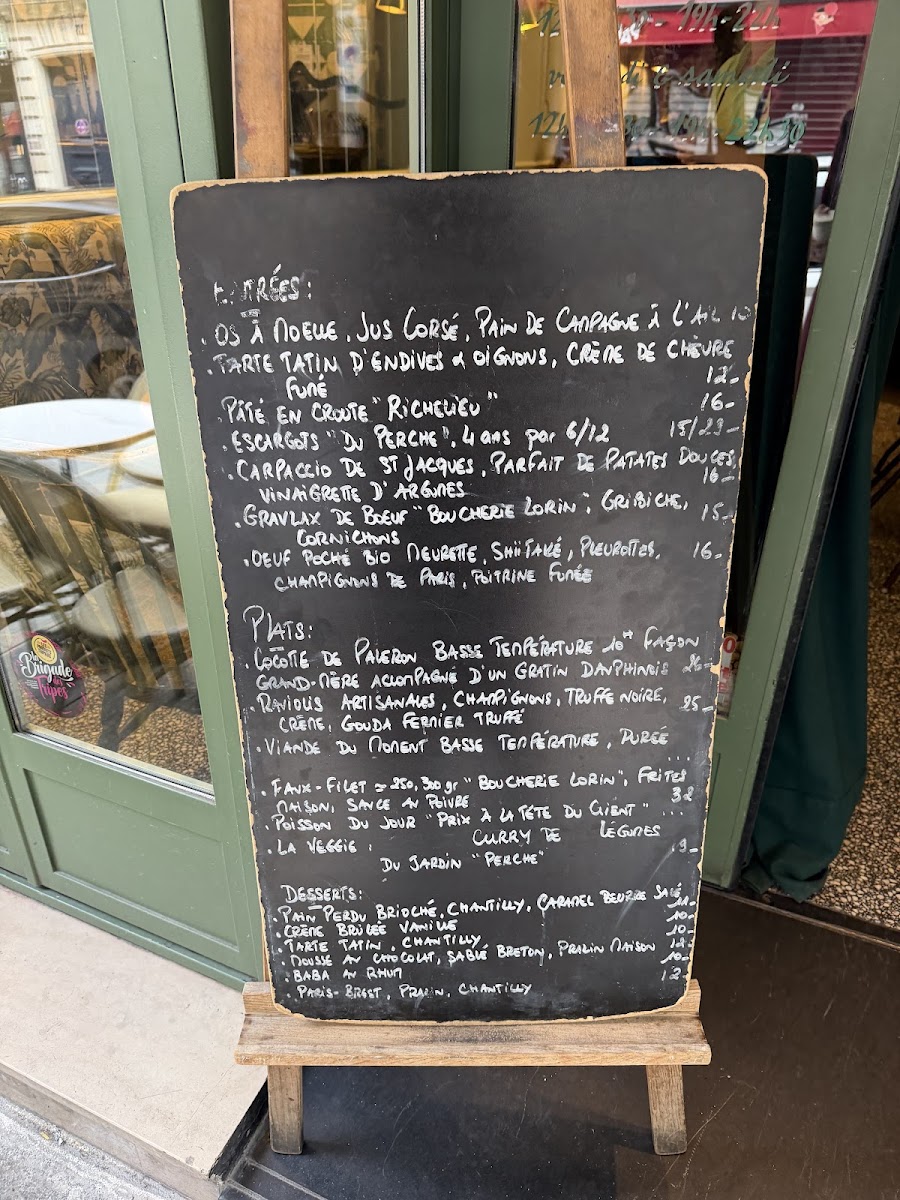 19h-22h
samedi
19h-22h30
ENTRÉES:
. OS À MOELLE, JUS CORSÉ, PAIN DE CAMPAGNE À L'AIL 10
. TARTE TATIN D'ENDIVES & OIGNONS, CRÈME DE CHÈVRE
FUMÉ 12-
. PÂTÉ EN CROUTE "RICHELIEU" 16-
. ESCARGOTS "DU PERCHE", 4 ans par 6/12 15/29-
. CARPACCIO DE ST JACQUES, PARFAIT DE PATATES DOUCES,
VINAIGRETTE D'AGRUMES 16-
. GRAVLAX DE BOEUF "BOUCHERIE LORIN", GRIBICHE, 15-
CORNICHONS
. OEUF POCHÉ BIO MEURETTE, SHIITAKÉ, PLEUROTTES, 16-
CHAMPIGNONS DE PARIS, POITRINE FUMÉE
PLATS:
. COCOTTE DE PALERON BASSE TEMPÉRATURE 10H FAÇON
GRAND-MÈRE ACCOMPAGNÉ D'UN GRATIN DAUPHINOIS 26-
. RAVIOLIS ARTISANALES, CHAMPIGNONS, TRUFFE NOIRE, 25-
CRÈME, GOUDA FERMIER TRUFFÉ
. VIANDE DU MOMENT BASSE TEMPÉRATURE, PURÉE
...
. FAUX-FILET ≃ 250, 300 gr "BOUCHERIE LORIN", FRITES
MAISON, SAUCE AU POIVRE 32
. POISSON DU JOUR "PRIX À LA TÊTE DU CLIENT" ...
. LA VEGGIE : CURRY DE LÉGUMES
DU JARDIN "PERCHE" 19-
DESSERTS:
. PAIN PERDU BRIOCHÉ, CHANTILLY, CARAMEL BEURRE SALÉ 11-
. CRÈME BRÛLÉE VANILLE 10-
. TARTE TATIN, CHANTILLY 10-
. MOUSSE AU CHOCOLAT, SABLÉ BRETON, PRALIN MAISON 12
. BABA AU RHUM 10-
. PARIS-BREST, PRALIN, CHANTILLY 12
La
Brigade
des
Tripes